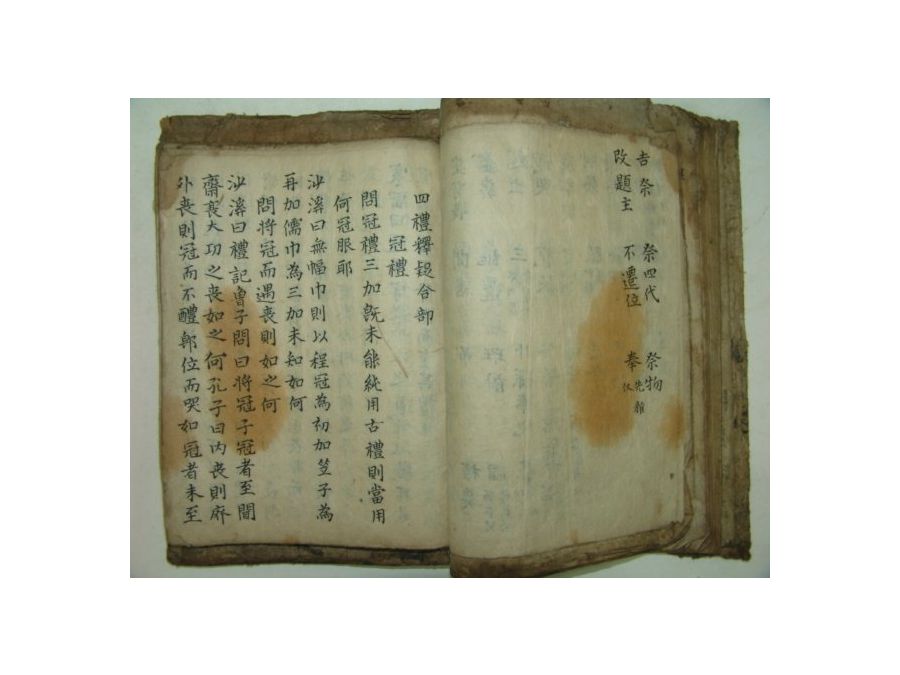 吉祭 祭四代 祭物
改題主 不遷位 奉先雜儀
四禮釋疑合部
冠禮
問冠禮三加旣未能純用古禮則當用
何冠服耶
沙溪曰無幅巾則以程冠為初加笠子為
再加儒巾為三加未知如何
問將冠而遇喪則如之何
沙溪曰禮記曾子問曰將冠子冠者至聞
齊衰大功之喪如之何孔子曰內喪則廢
外喪則冠而不醴卽位而哭如冠者未至